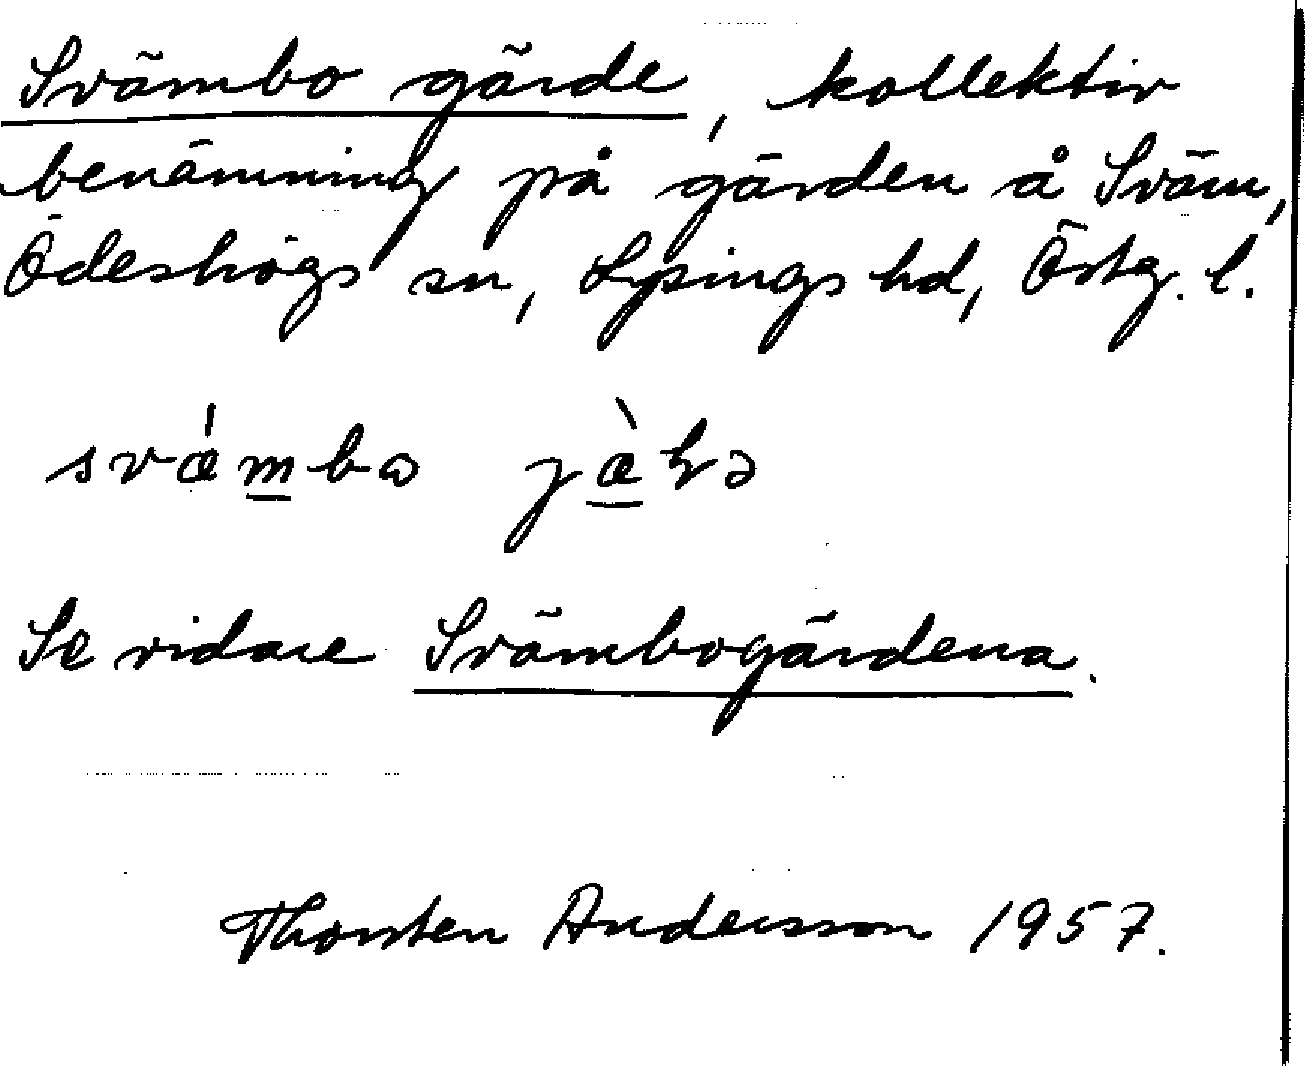 Svämbo gärde, kollektiv
benämning på gärden å Sväm,
Ödeshögs sn, Lysings hd, Östg. l.
svǽmbɷ jæ̀ꜧə
Se vidare Svämbogärdena.
Thorsten Andersson 1957.